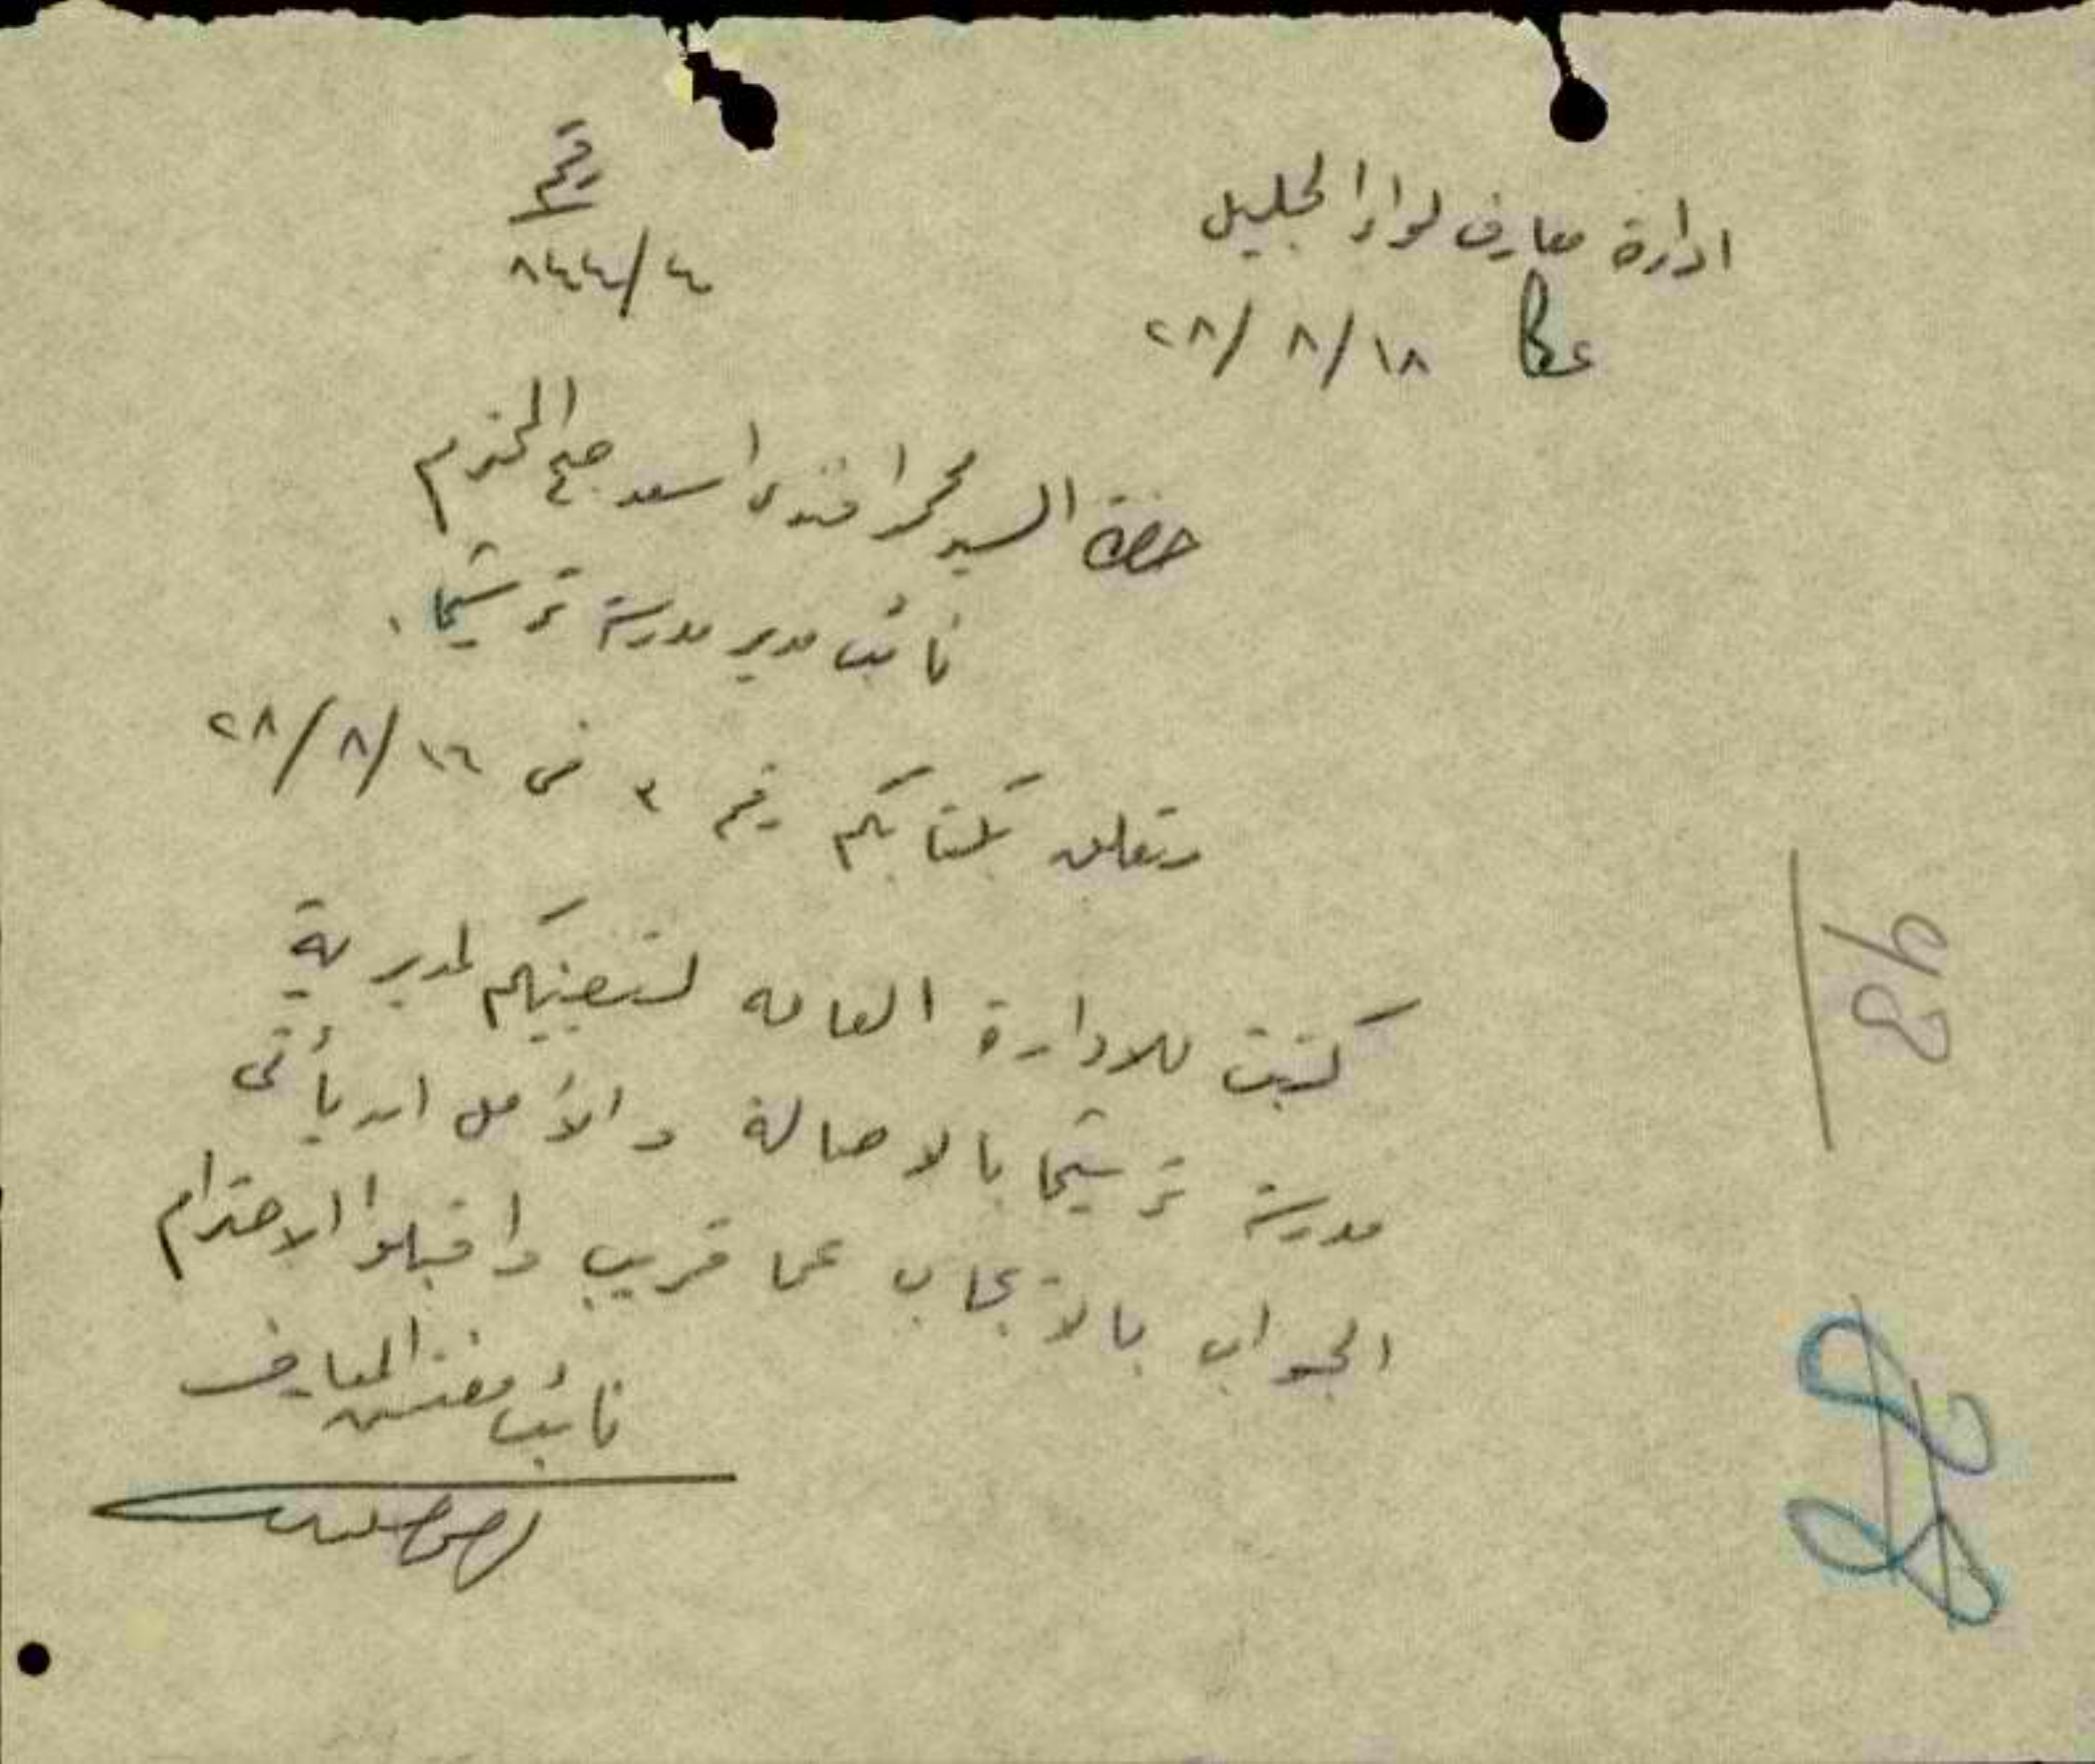 ادارة معارف لواء الجليل
عكا ١٨/ ٨/ ٢٨
رقم
٨٤٤/٤
حضرة السيد محمد افندي اسعد المحترم
نائب مدير مدرسة ترشيحا.
يتعلق بكتابكم رقم ٣ في ١٦/ ٨/ ٢٨
كتبت للادارة العامه لتعيينكم لمديرية
مدرسة ترشيحا بالاصالة والأمل ان يأتي
الجواب بالايجاب عما قريب واقبلوا الاحترام
نائب مفتش المعارف
48